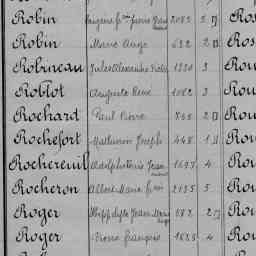 Robin 2085 5 Ros
Robin Marie Ange 632 2 Ros
Robineau Jules Alexandre 1330 3 Rou
Roblot Auguste René 1082 3 Rou
Rochard Paul Pierre 2 Rou
Rochefort Mathurin Joseph 448 1 Rou
Rochereuil Jean 1697 4 Rou
Rocheron Albert Marie 2135 5 Rou
Roger Hippolyte Jean Marie 2 Rou
Roger Pierre François 1653 4 Rou